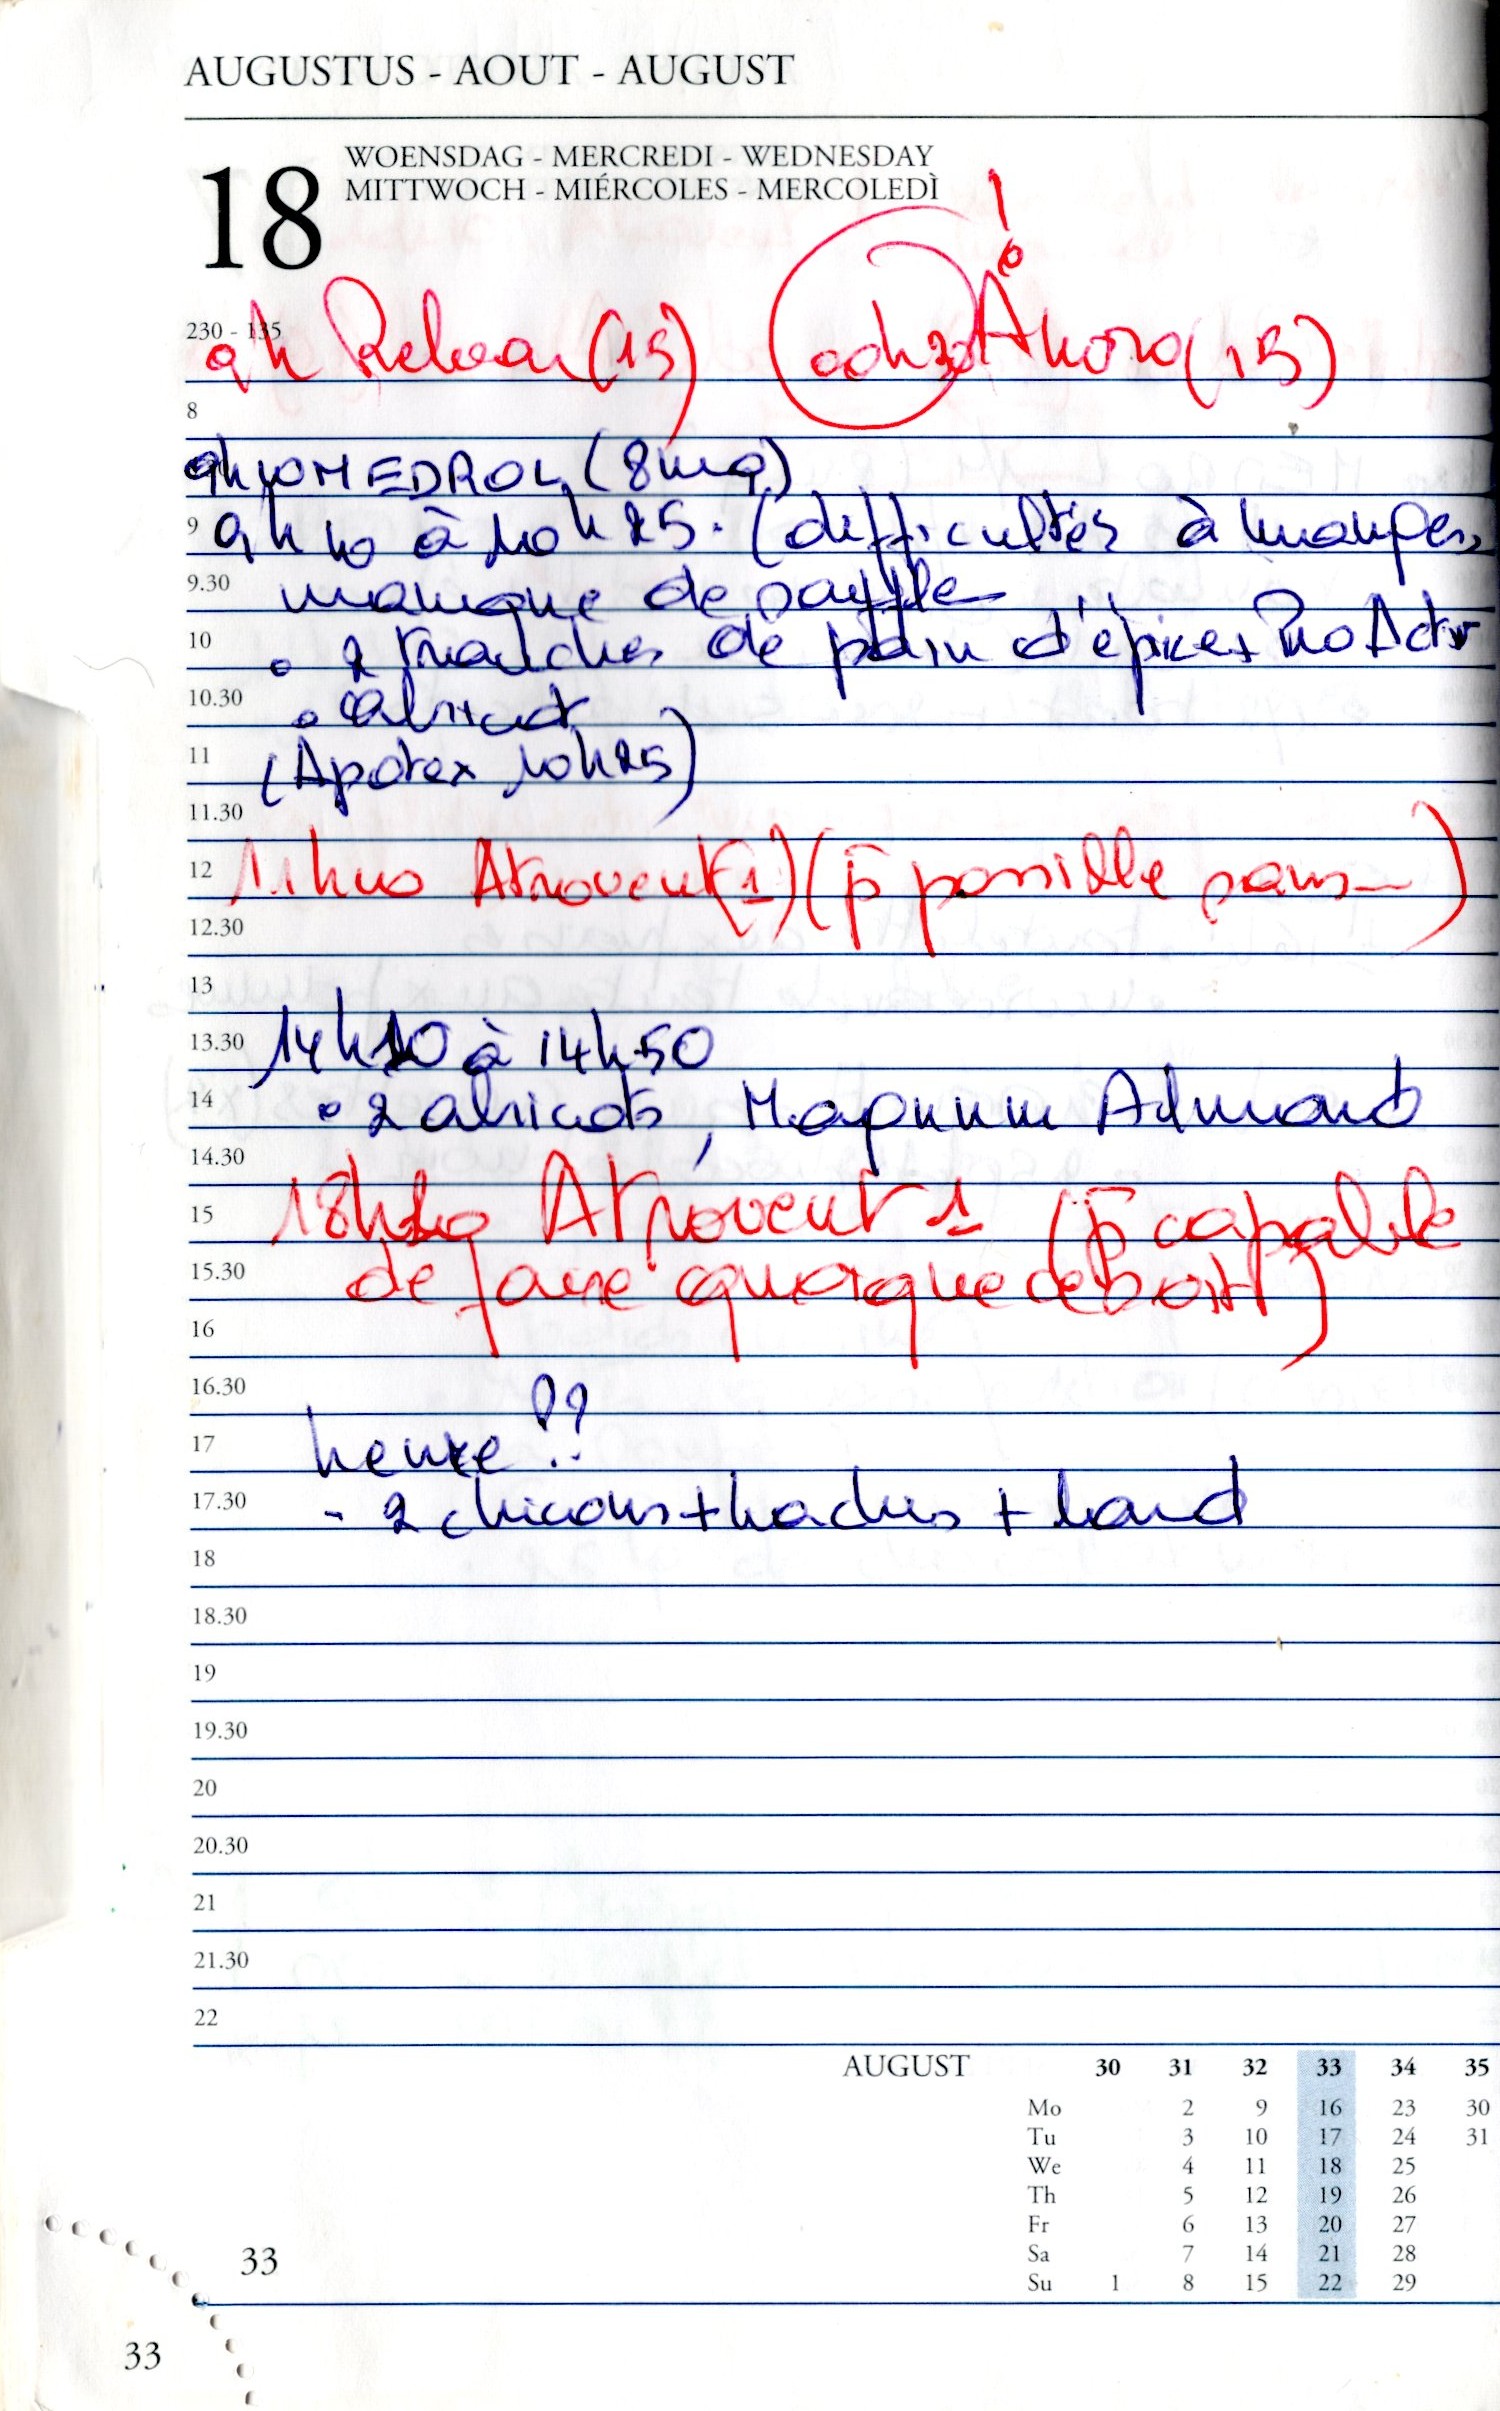 AUGUSTUS - AOUT - AUGUST
18
WOENSDAG - MERCREDI - WEDNESDAY
MITTWOCH - MIÉRCOLES - MERCOLEDÌ
!
230 - 135
9h (15) 00h30 (15)
8
9h10 MEDROL (8mg)
9 9h10 à 10h25. (difficultés à manger,
9.30 manque de souffle
10 • 2 tranches de pain d'épice + ProActiv
10.30 • abricot
11 (Apotex 10h25)
11.30
12 11h40 Atrovent (1) (p̄ possible sans )
12.30
13
13.30 14h10 à 14h50
14 • 2 abricots, Magnum Almond
14.30
15 18h20 Atrovent 1 (p̄ capable
15.30 de faire quoique ce soit)
16
16.30 ??
17 heure
17.30 - 2 chicons + hachis + lard
18
18.30
19
19.30
20
20.30
21
21.30
22
AUGUST 30 31 32 33 34 35
Mo 2 9 16 23 30
Tu 3 10 17 24 31
We 4 11 18 25
Th 5 12 19 26
Fr 6 13 20 27
Sa 7 14 21 28
Su 1 8 15 22 29
33
33